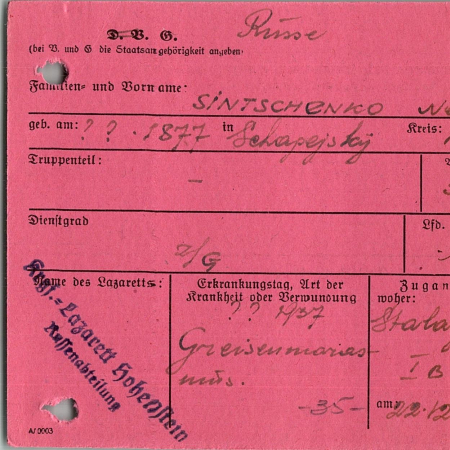 D. V. G. Russe
(bei V. und G die Staatsangehörigkeit angeben)
Familien- und Vorname:
SINTSCHENKO
geb. am: ? ? . 1877 in Kreis:
Truppenteil: -
Dienstgrad Lfd.
Z/G
Name des Lazaretts:
Krgf.-Lazarett Hohenstein
Russenabteilung
Erkrankungstag, Art der
Krankheit oder Verwundung
? ?
-35-
Zugan
woher:
Stala
I B
am: 22.12
A/0003